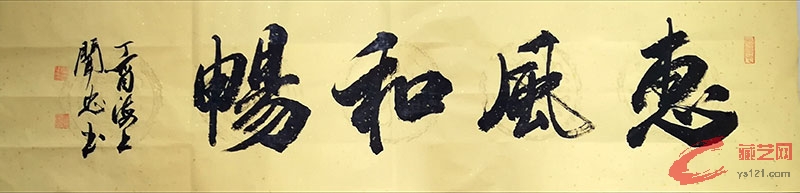 惠風和暢
丁酉海上
聞忠書
藏艺网
ys121.com